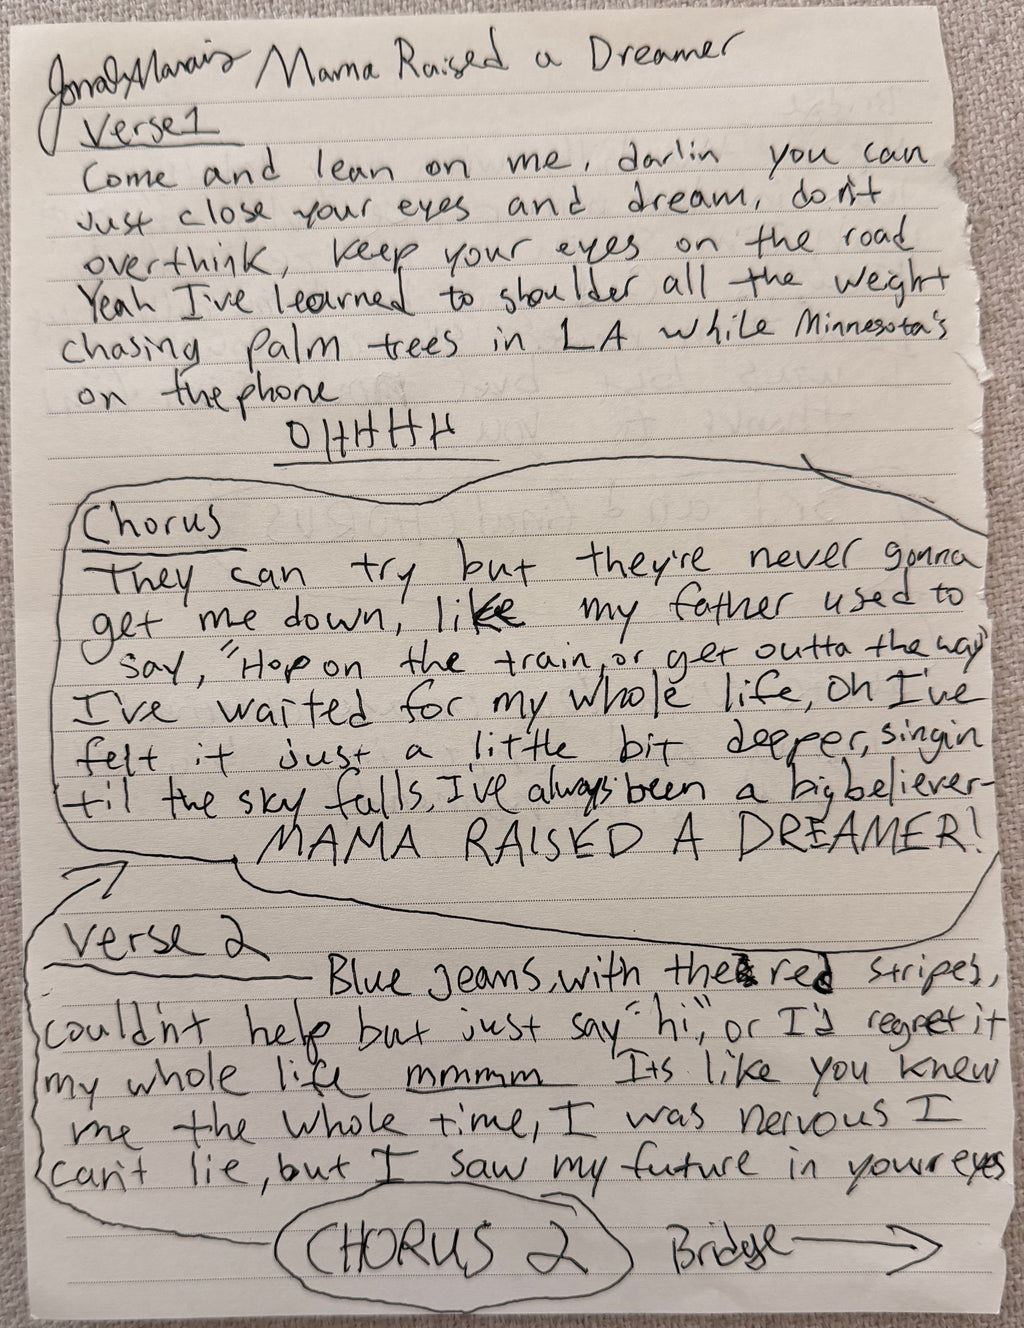 Jonah Marais Mama Raised a Dreamer
Verse 1
Come and lean on me, darlin you can
just close your eyes and dream, don't
overthink, keep your eyes on the road
Yeah I've learned to shoulder all the weight
chasing palm trees in LA while Minnesota's
on the phone
OHHHH
Chorus
They can try but they're never gonna
get me down, like my father used to
say, "Hop on the train, or get outta the way"
I've waited for my whole life, Oh I've
felt it just a little bit deeper, singin
til the sky falls, I've always been a big believer-
MAMA RAISED A DREAMER!
Verse 2
Blue jeans, with the red stripes,
couldn't help but just say "hi", or I'd regret it
my whole life mmmmm Its like you knew
me the whole time, I was nervous I
can't lie, but I saw my future in your eyes
CHORUS 2 Bridge →